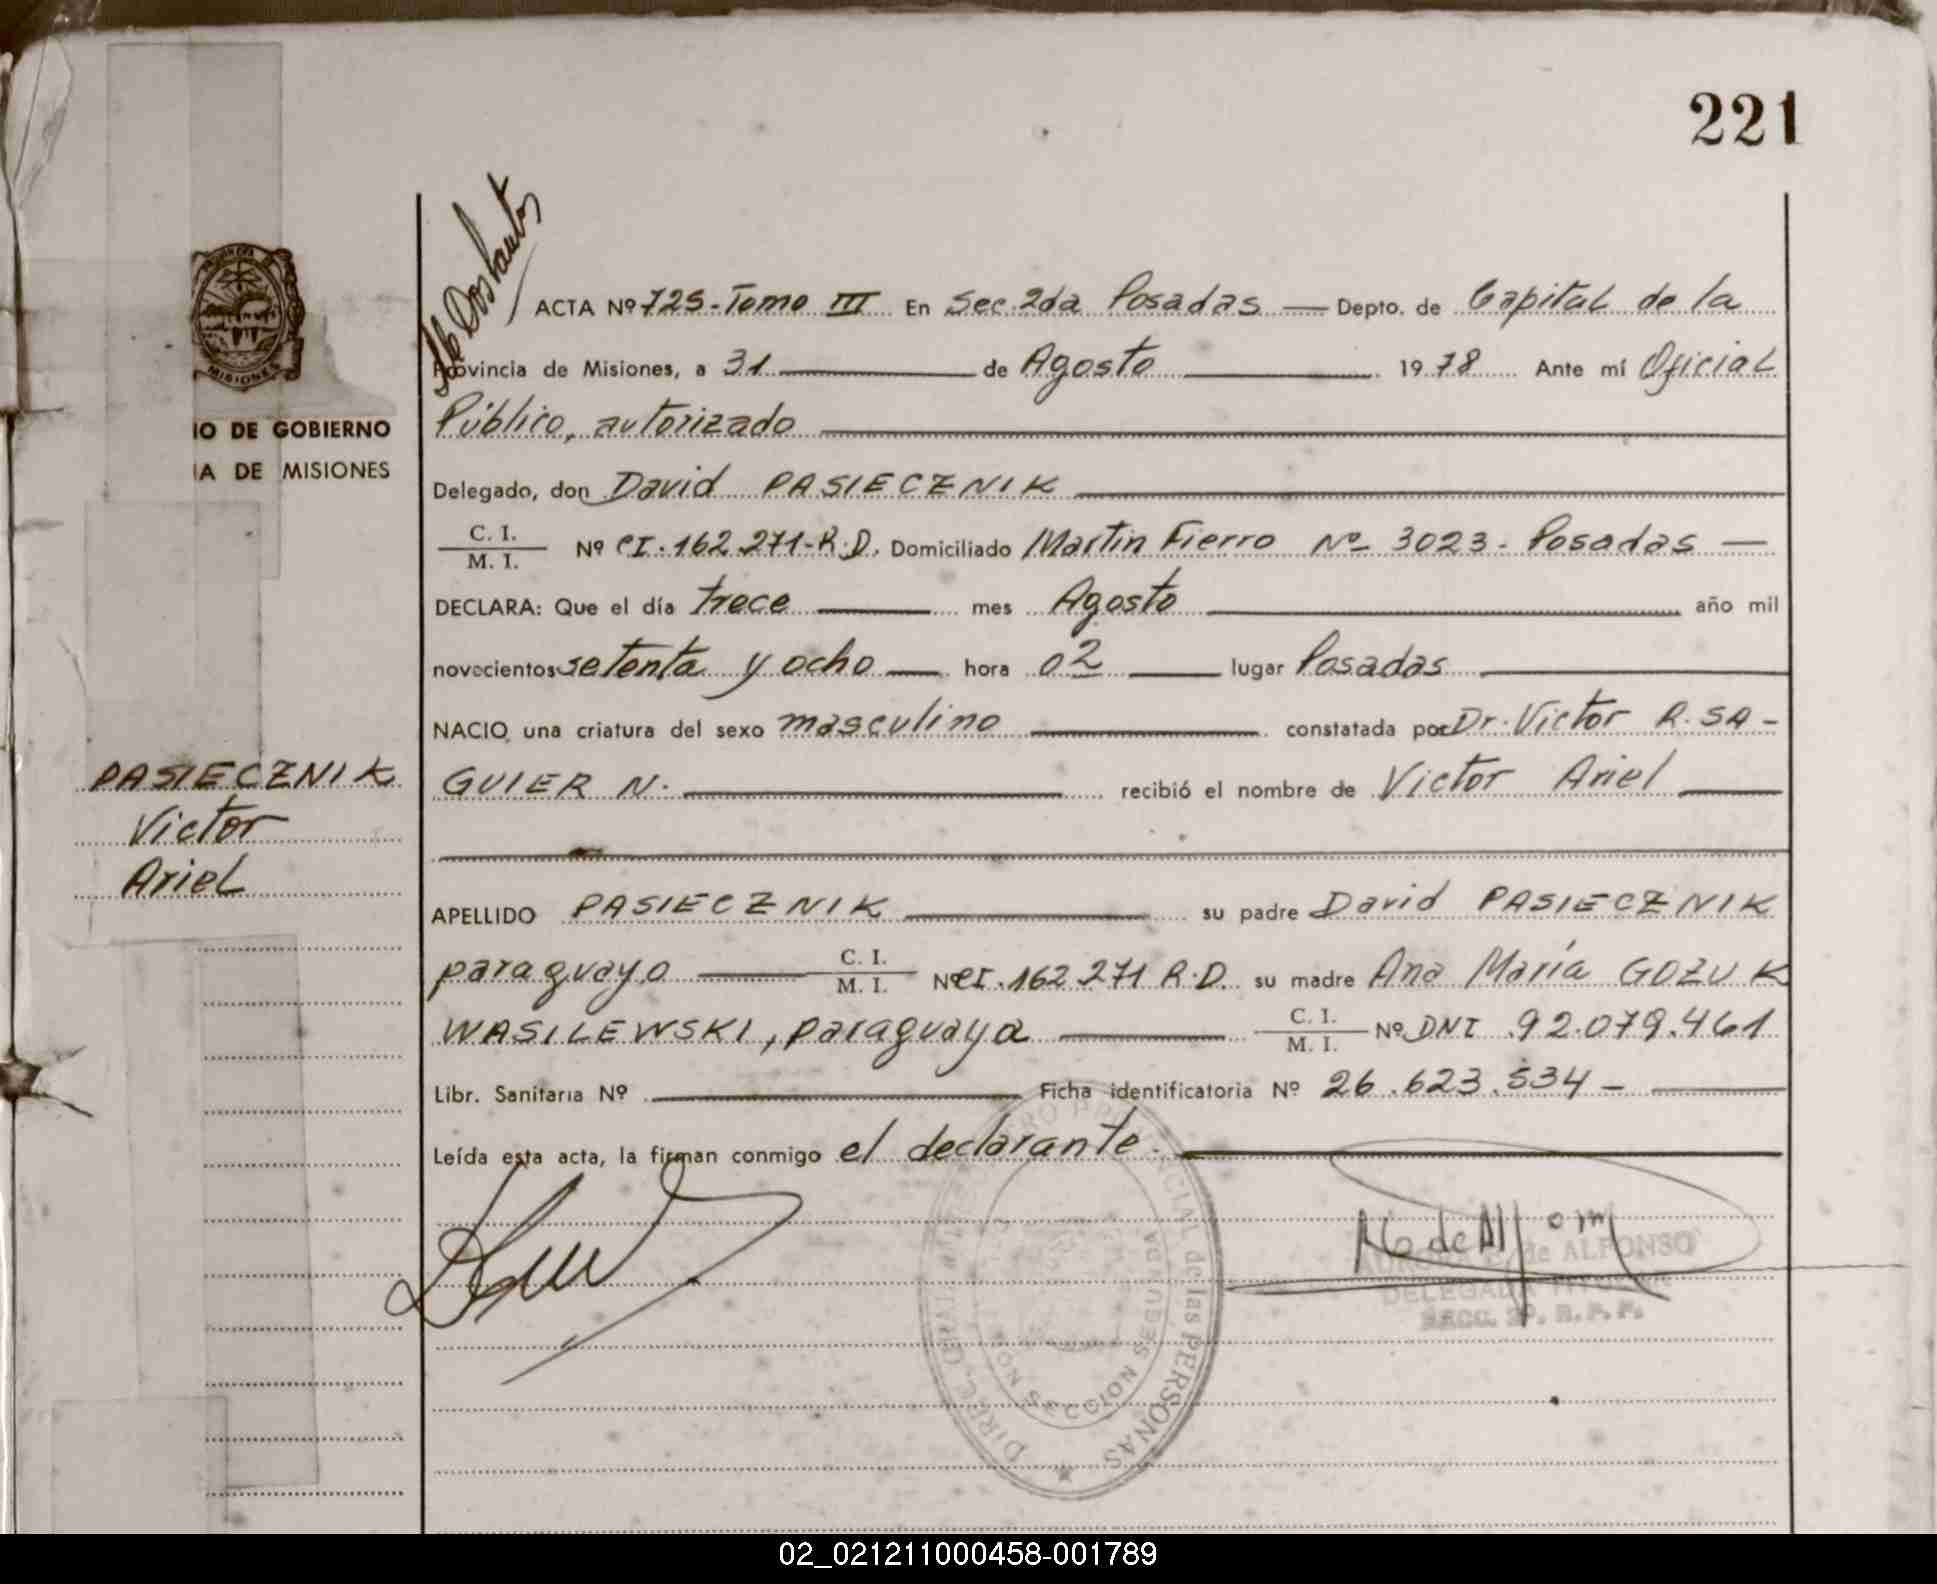 221
ACTA Nº 725-Tomo III En Sec. 2da Posadas — Depto. de Capital de la
Provincia de Misiones, a 31 de Agosto 1978 Ante mí Oficial
Público, autorizado
IO DE GOBIERNO
IA DE MISIONES
MISIONES
Delegado, don David PASIECZNIK
C. I.
M. I. Nº CI.162.271-R.D. Domiciliado Martin Fierro Nº 3023- Posadas —
DECLARA: Que el día trece mes Agosto año mil
novecientos setenta y ocho hora 02 lugar Posadas
NACIO una criatura del sexo masculino constatada por Dr. Victor R. SA-
GUIER N. recibió el nombre de Victor Ariel
PASIECZNIK
Victor
Ariel
APELLIDO PASIECZNIK su padre David PASIECZNIK
paraguayo C. I. M. I. Nº CI.162.271 R.D. su madre Ana María GOZUK
WASILEWSKI, paraguaya C. I. M. I. Nº DNI 92.079.461
Libr. Sanitaria Nº Ficha identificatoria Nº 26.623.534 –
Leída esta acta, la firman conmigo el declarante.
de ALFONSO
DELEGADA TITULAR
SECC. 2ª. R. P. P.
de las PERSONAS
SECCION SEGUNDA
02_021211000458-001789